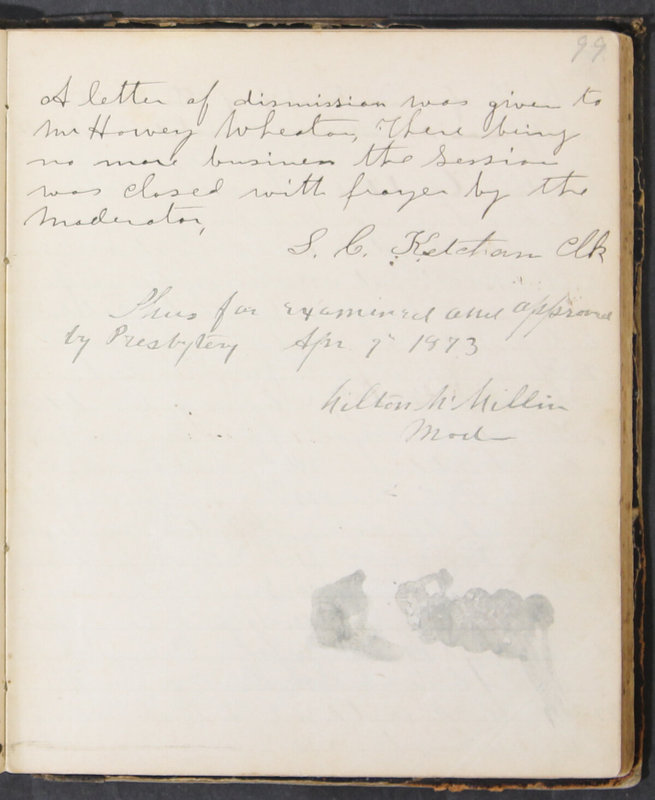 99
A letter of dismission was given to
Mr Harvey Wheaton, There being
no more business the Session
was closed with prayer by the
Moderator,
S. C. Ketcham Clk
Thus far examined and approved
by Presbytery Apr 9th 1873
Milton McMillin
Mod